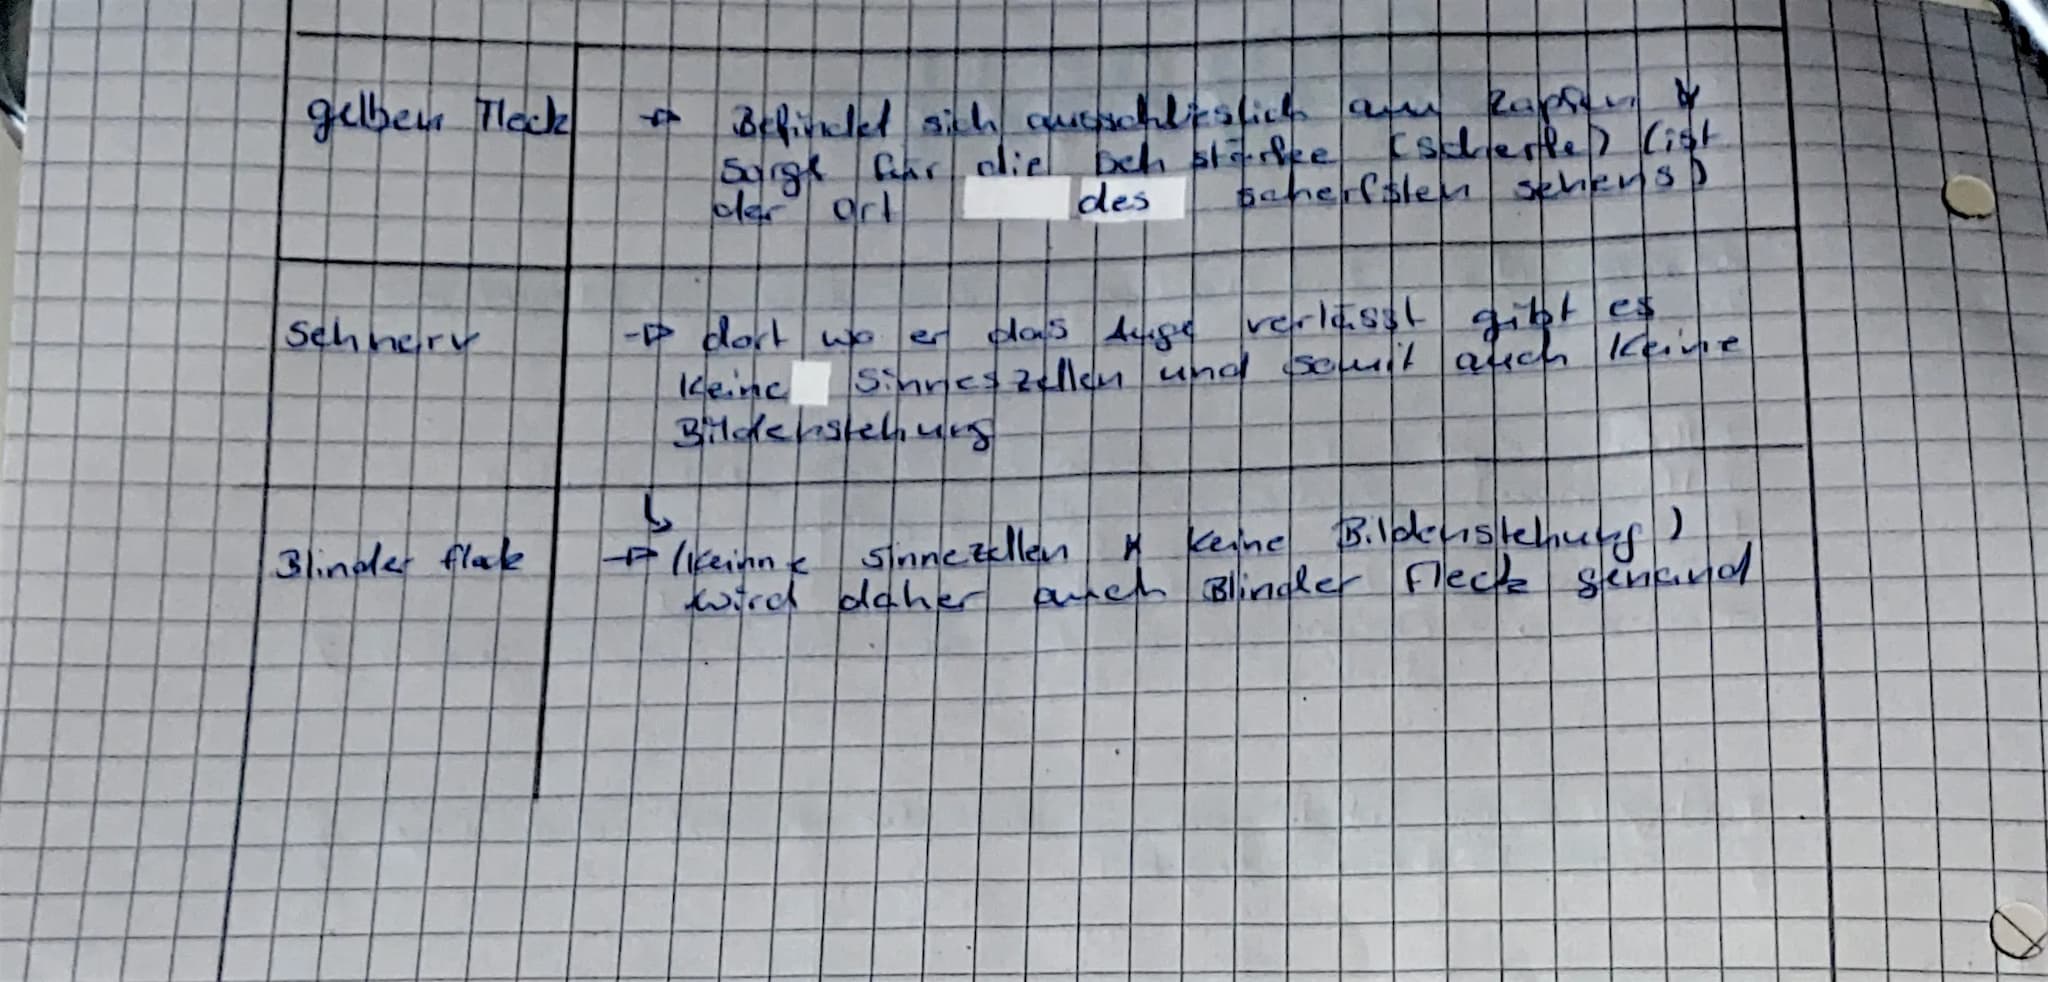 gelben Fleck
→ Befindet sich ausschlieslich am Zapfen &
sorgt für die Seh stärke (scherfe) (ist
der Ort des scherfsten sehens)
Sehnerv
→ dort wo er das Auge verlässt gibt es
Keine Sinneszellen und somit auch Keine
Bildenstehung
↳
Blinder fleck
→ (Keinne sinnezellen & Keine Bildenstehung)
wird daher auch Blinder Fleck genannd